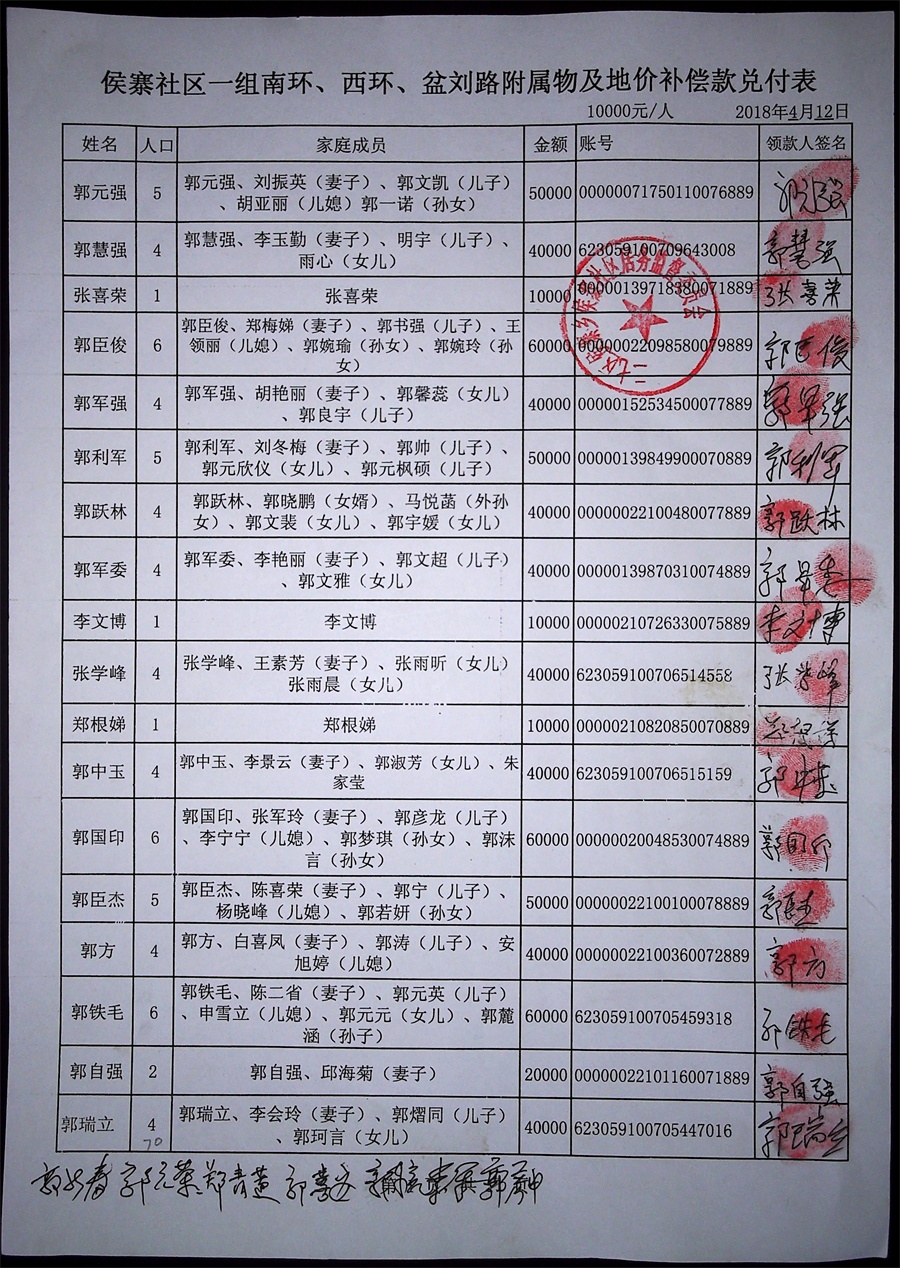 侯寨社区一组南环、西环、盆刘路附属物及地价补偿款兑付表
10000元/人 2018年4月12日
姓名 人口 家庭成员 金额 账号 领款人签名
郭元强 5 郭元强、刘振英（妻子）、郭文凯（儿子） 50000 00000071750110076889 郭元强
、胡亚丽（儿媳）郭一诺（孙女）
郭慧强 4 郭慧强、李玉勤（妻子）、明宇（儿子）、 40000 623059100709643008 郭慧强
雨心（女儿）
张喜荣 1 张喜荣 10000 00000139718380071889 张喜荣
郭臣俊 6 郭臣俊、郑梅娣（妻子）、郭书强（儿子）、王 60000 00000022098580079889 郭臣俊
领丽（儿媳）、郭婉瑜（孙女）、郭婉玲（孙
女）
郭军强 4 郭军强、胡艳丽（妻子）、郭馨蕊（女儿） 40000 00000152534500077889 郭军强
、郭良宇（儿子）
郭利军 5 郭利军、刘冬梅（妻子）、郭帅（儿子）、 50000 00000139849900070889 郭利军
郭元欣仪（女儿）、郭元枫硕（儿子）
郭跃林 4 郭跃林、郭晓鹏（女婿）、马悦菡（外孙 40000 00000022100480077889 郭跃林
女）、郭文裴（女儿）、郭宇媛（女儿）
郭军委 4 郭军委、李艳丽（妻子）、郭文超（儿子） 40000 00000139870310074889 郭军委
、郭文雅（女儿）
李文博 1 李文博 10000 00000210726330075889 李文博
张学峰 4 张学峰、王素芳（妻子）、张雨昕（女儿） 40000 623059100706514558 张学峰
张雨晨（女儿）
郑根娣 1 郑根娣 10000 00000210820850070889
郭中玉 4 郭中玉、李景云（妻子）、郭淑芳（女儿）、朱 40000 623059100706515159 郭中玉
家莹
郭国印 6 郭国印、张军玲（妻子）、郭彦龙（儿子） 60000 00000020048530074889 郭国印
、李宁宁（儿媳）、郭梦琪（孙女）、郭沫
言（孙女）
郭臣杰 5 郭臣杰、陈喜荣（妻子）、郭宁（儿子）、 50000 00000022100100078889 郭臣杰
杨晓峰（儿媳）、郭若妍（孙女）
郭方 4 郭方、白喜凤（妻子）、郭涛（儿子）、安 40000 00000022100360072889 郭方
旭婷（儿媳）
郭铁毛 6 郭铁毛、陈二省（妻子）、郭元英（儿子） 60000 623059100705459318 郭铁毛
、申雪立（儿媳）、郭元元（女儿）、郭麓
涵（孙子）
郭自强 2 郭自强、邱海菊（妻子） 20000 00000022101160071889 郭自强
郭瑞立 4 郭瑞立、李会玲（妻子）、郭熠同（儿子） 40000 623059100705447016 郭瑞立
、郭珂言（女儿）
70
郑青莲